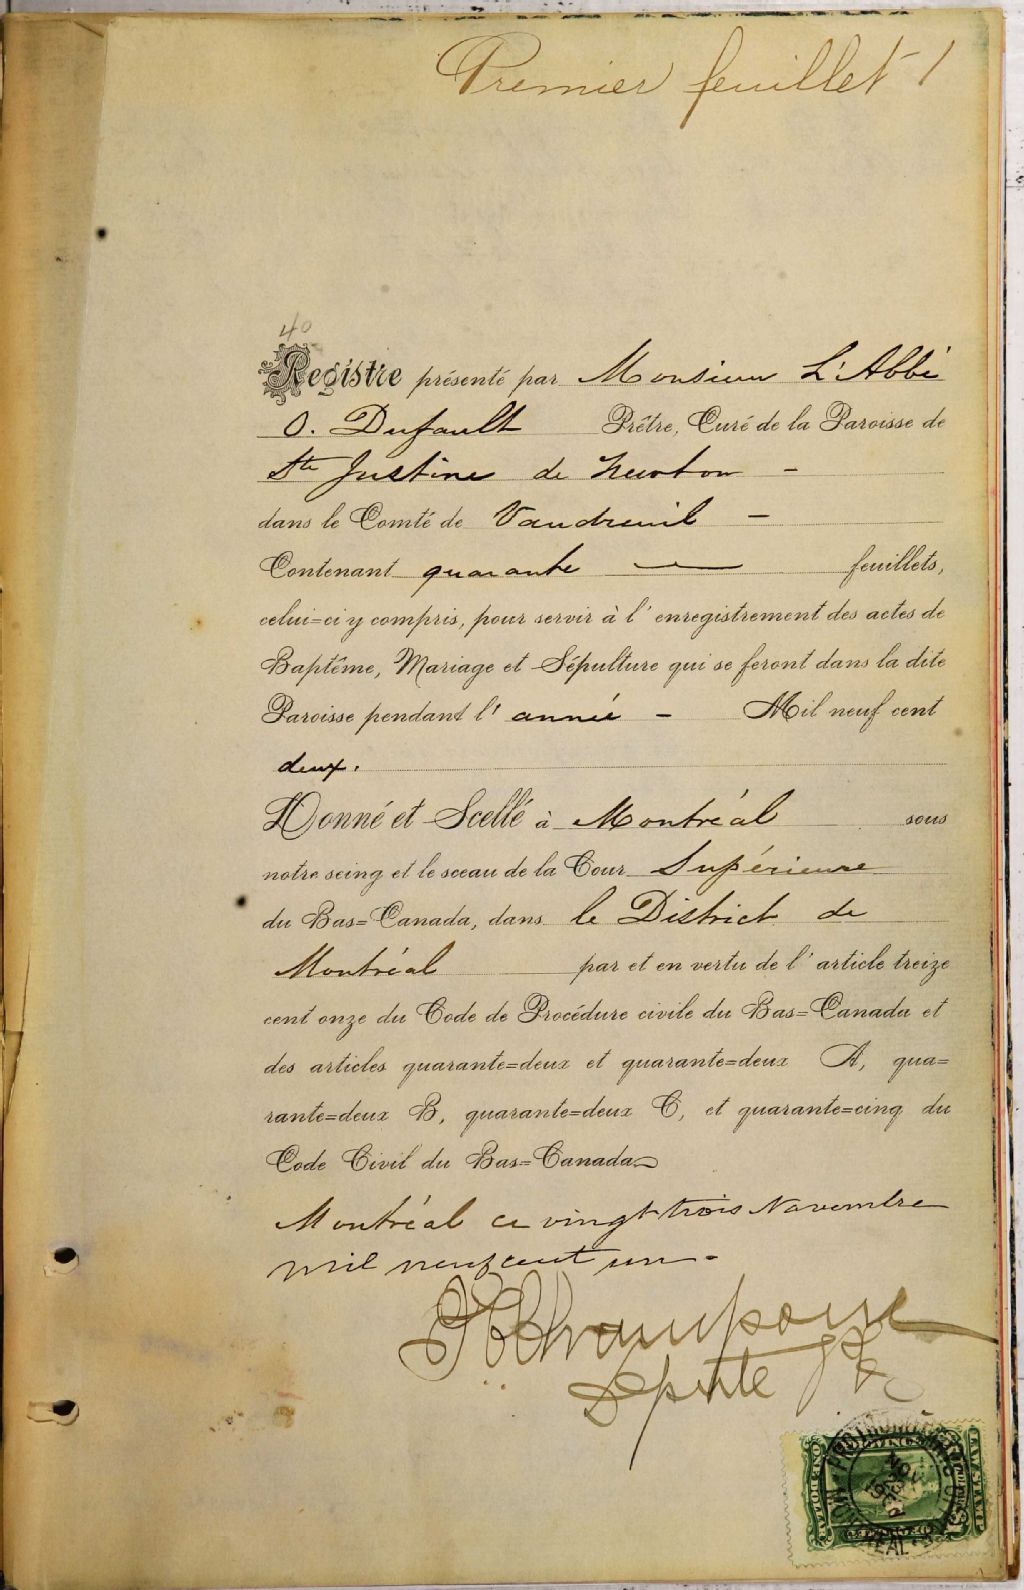 Premier feuillet 1
40
Registre présenté par Monsieur L'Abbé
O. Dufault Prêtre, Curé de la Paroisse de
Ste Justine de Newton -
dans le Comté de Vaudreuil -
Contenant quarante — feuillets,
celui=ci y compris, pour servir à l'enregistrement des actes de
Baptême, Mariage et Sépulture qui se feront dans la dite
Paroisse pendant l'année - Mil neuf cent
deux.
Donné et Scellé à Montréal sous
notre seing et le sceau de la Cour Supérieure
du Bas=Canada, dans le District de
Montréal par et en vertu de l'article treize
cent onze du Code de Procédure civile du Bas=Canada et
des articles quarante=deux et quarante=deux A, qua=
rante=deux B, quarante=deux C, et quarante=cinq du
Code Civil du Bas=Canada
Montréal ce vingt trois Novembre
mil neuf cent un -
Députe
LAW STAMP
NOV